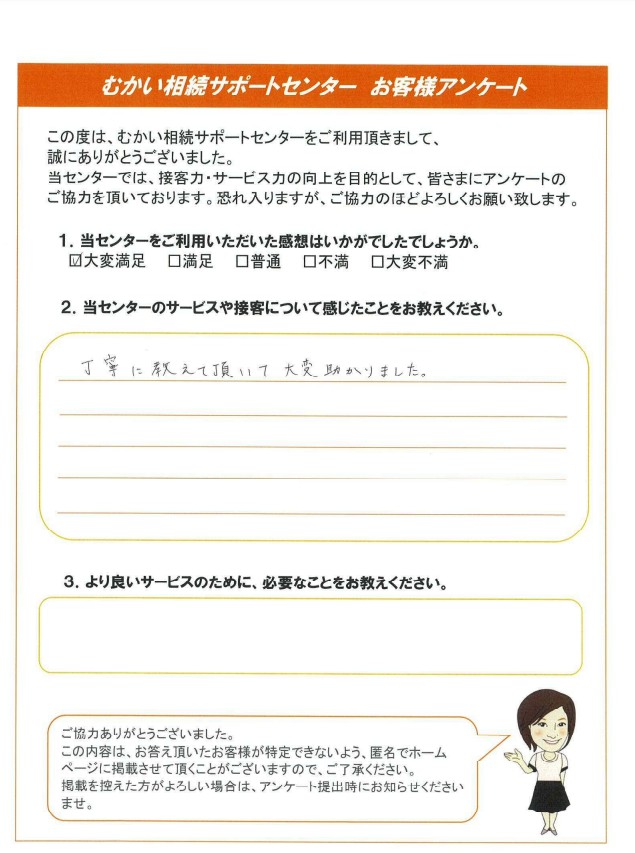 むかい相続サポートセンター　お客様アンケート
この度は、むかい相続サポートセンターをご利用頂きまして、
誠にありがとうございました。
当センターでは、接客力・サービス力の向上を目的として、皆さまにアンケートの
ご協力を頂いております。恐れ入りますが、ご協力のほどよろしくお願い致します。
１．当センターをご利用いただいた感想はいかがでしたでしょうか。
☑大変満足　□満足　□普通　□不満　□大変不満
２．当センターのサービスや接客について感じたことをお教えください。
丁寧に教えて頂いて大変助かりました。
３．より良いサービスのために、必要なことをお教えください。
ご協力ありがとうございました。
この内容は、お答え頂いたお客様が特定できないよう、匿名でホーム
ページに掲載させて頂くことがございますので、ご了承ください。
掲載を控えた方がよろしい場合は、アンケート提出時にお知らせください
ませ。